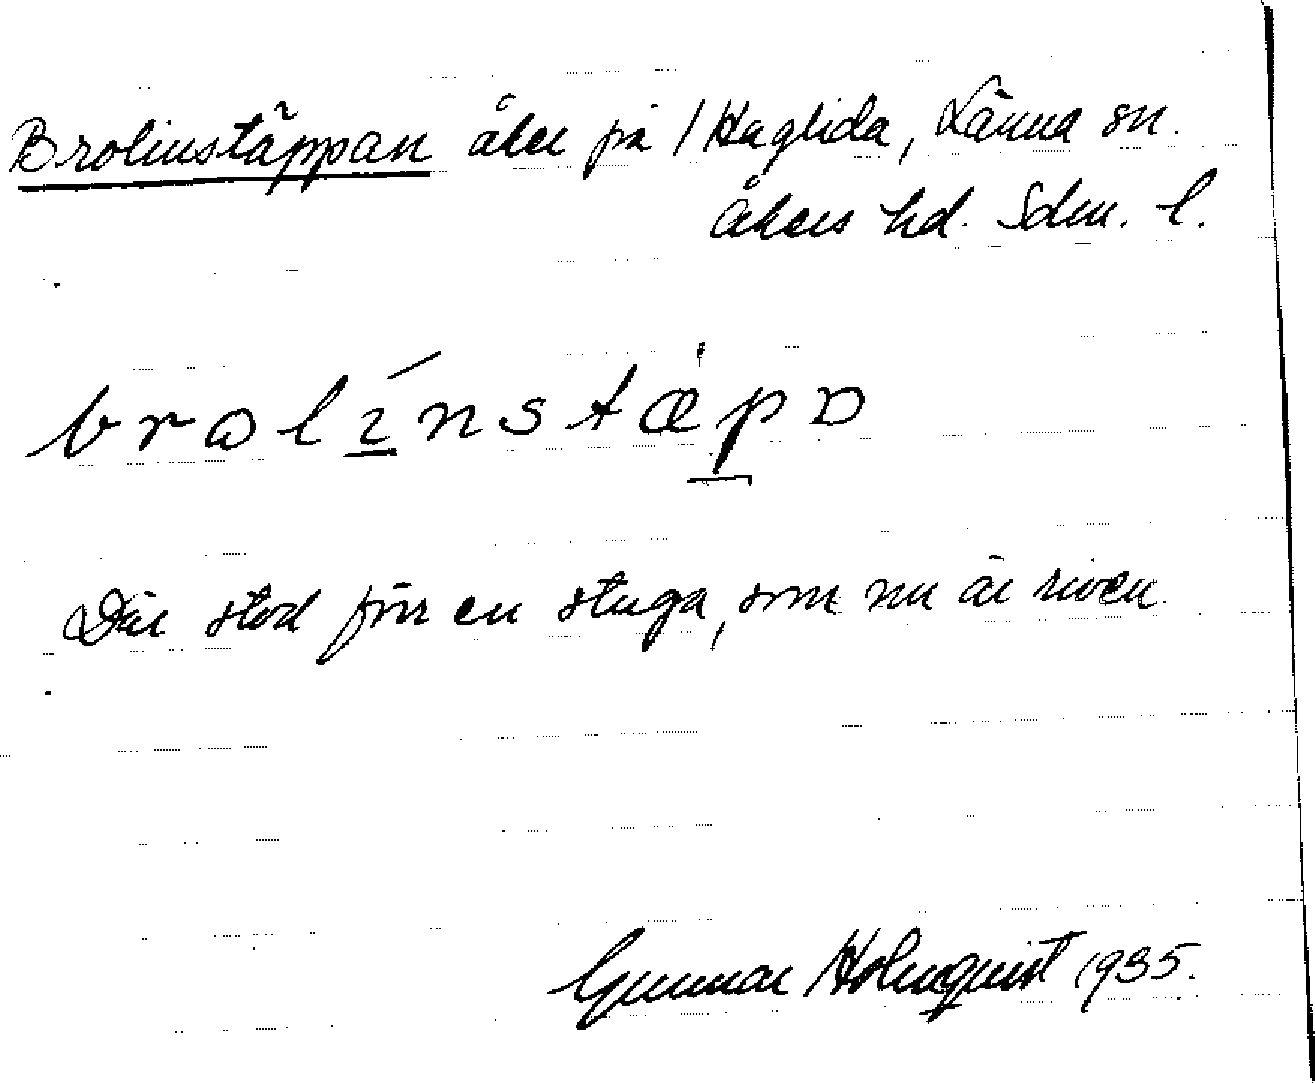 Brolinstäppan åker på /Haglida, Länna sn.
Åkers hd. Sdm. l.
brolínstæpɒ
Där stod förr en stuga, som nu är riven
Gunnar Holmquist 1935.